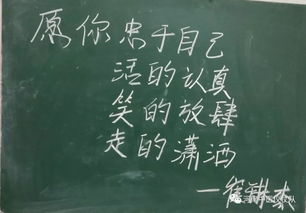 愿你忠于自己
活的认真
笑的放肆
走的潇洒